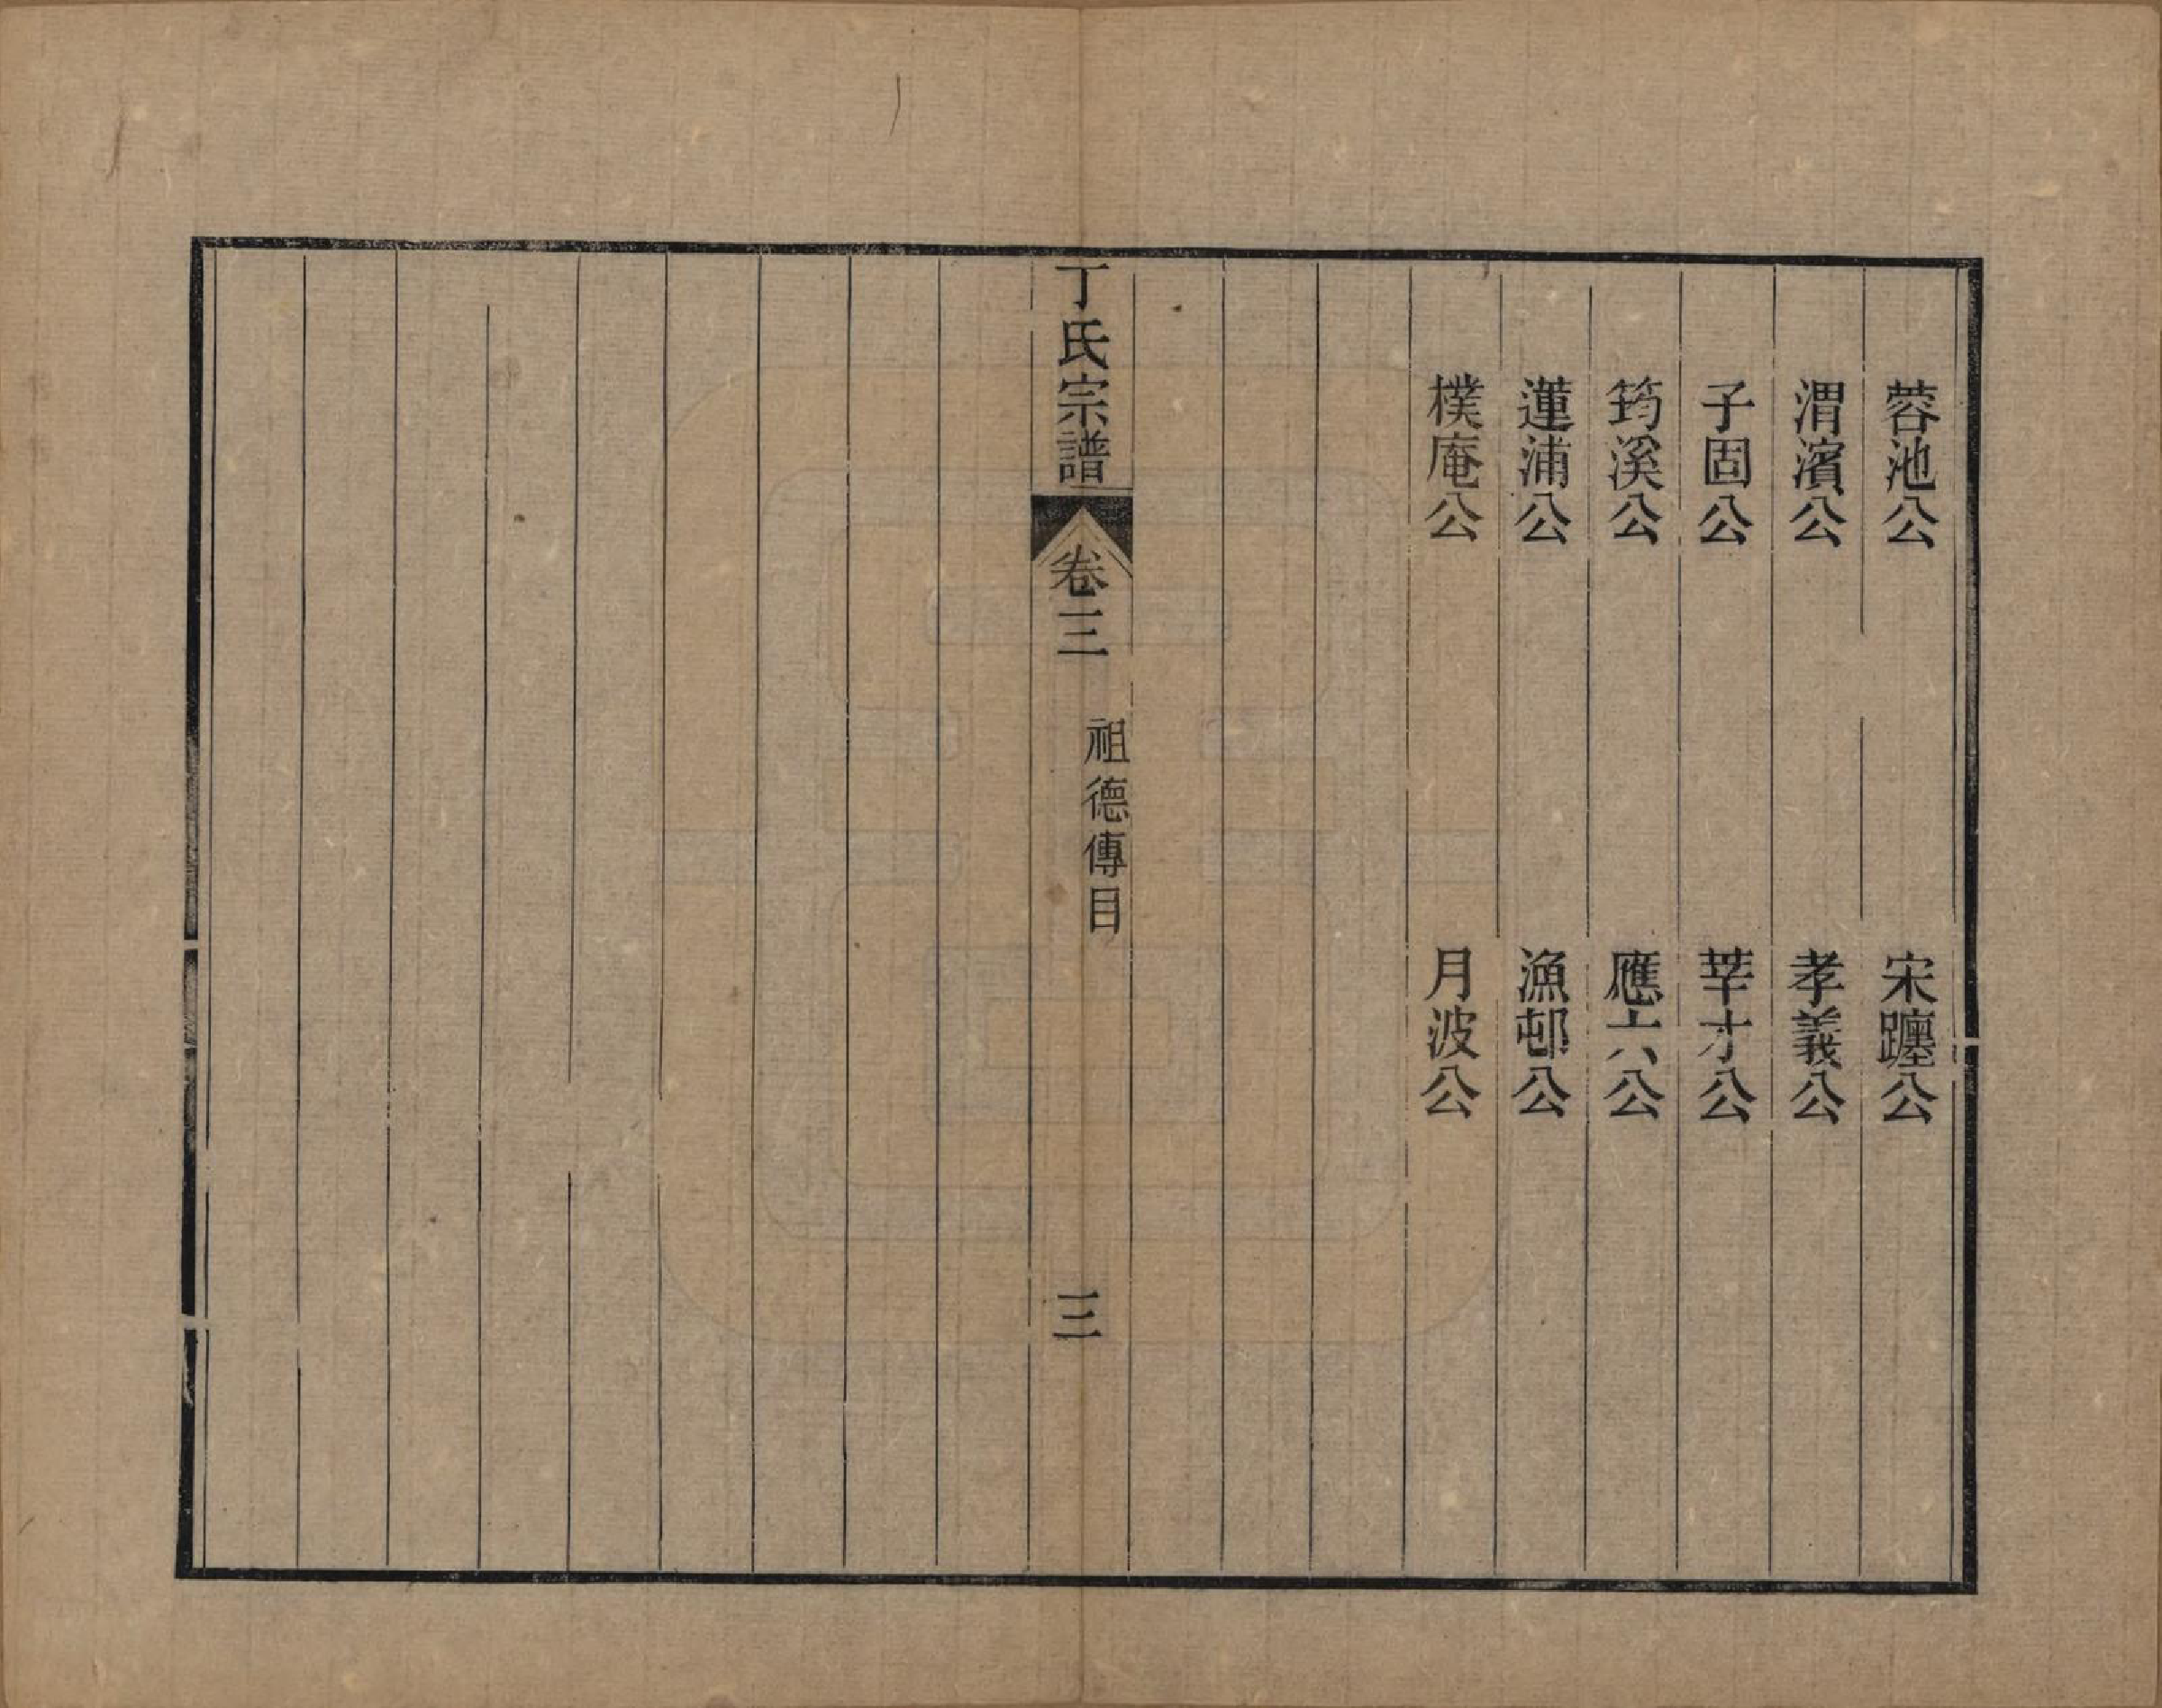 蓉池公　宋躔公
渭濱公　孝義公
子固公　莘才公
筠溪公　應六公
蓮浦公　漁邨公
樸庵公　月波公
丁氏宗譜　卷三　祖德傳目　三